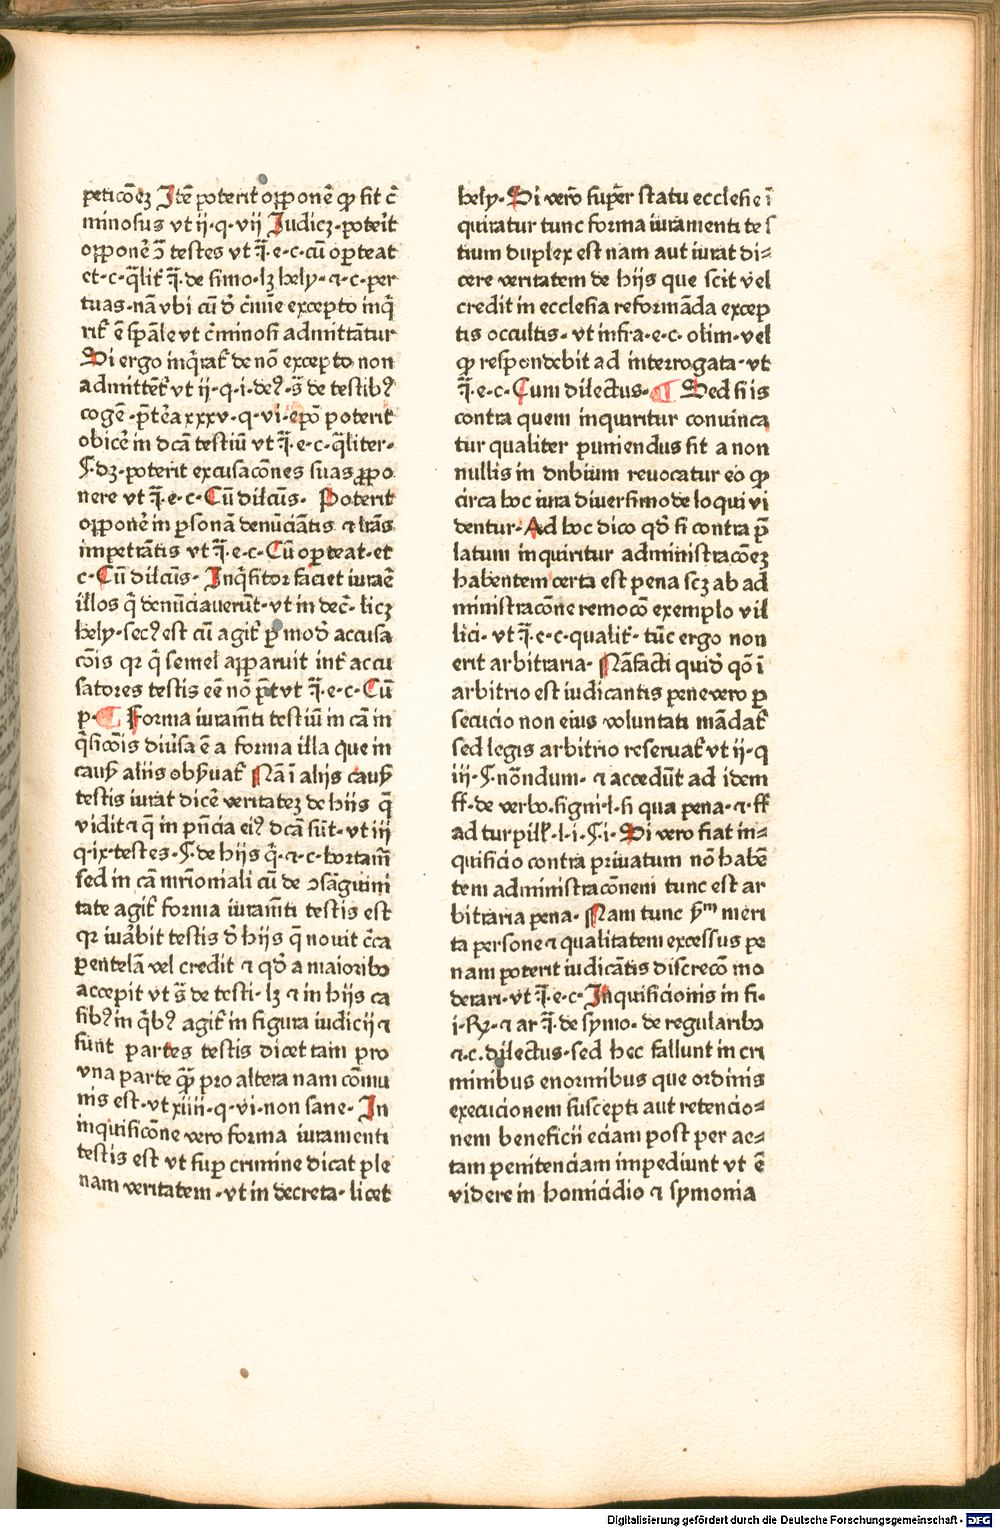 peticōēz Jtē poterit᷑ opponē ꝙ sit c̄
minosus vt ii·q·vii Judicz·poterit
opponē ↄ̄ testes vt j̄·e·c·cū oꝑteat
et·c·q̄lit᷑ j̄·de simo·lz hely·⁊·c·per
tuas·nā vbi cū d̄ c̄mīe excepto inq̄
rit᷑ ē spāle vt c̄minosi admittātur
Si ergo inq̄rat᷑ de nō excepto non
admittēt᷑ vt ii·q·i·deꝰ·s̄ de testibꝰ
cogē·p̄tēa xxxv·q·vi·ep̄o poterit
obicē in dcā testiū vt j̄·e·c·q̄liter·
¶·dz·poterit excusacōnes suas ꝓpo
nere vt j̄·e·c·Cū dilcūs· Poterit
opponē in ꝑsonā denūciātis ⁊ lr̄as
impetrātis vt j̄·e·c·Cū oꝑteat·et
c·Cū dilcūs· Jnq̄sitor faciet iuraē
illos q̄ denūciauerūt·vt in dec̄·licz
hely·secꝰ est cū agit᷑ ꝑ mod̄ accusa
cōis qꝛ q̄ semel apparuit int᷑ accu
satores testis eē nō pt̄ vt j̄·e·c·Cū
p·¶ Forma iuram̄ti testiū in cā in
q̄sicōis diūsa ē a forma illa que in
causꝭ aliis obẜuat᷑ Nā ī alijs causꝭ
testis iurat dicē veritatez de hiis q̄
vidit ⁊ q̄ in pn̄cia eiꝰ dcā sūt·vt iii
q·ix·testes·¶·de hijs q̄·⁊·c·hortam̄
sed in cā mr̄ioniali cū de ↄsāguini
tate agit᷑ forma iuram̄ti testis est
qꝛ iurābit testis d̄ hijs q̄ nouit c̄ca
ꝑentelā vel credit ⁊ qd̄ a maioribꝫ
accepit vt s̄ de testi·lz ⁊ in hijs ca
sibꝰ in q̄bꝰ agit᷑ in figura iudicij ⁊
sunt partes testis dicet tam pro
vna parte q̄ꝫ pro altera nam cōmu
nis est·vt xiiii·q·vi·non sane·Jn
inquisicōne vero forma iuramenti
testis est vt suꝑ crimine dicat ple
nam veritatem·vt in decreta·licet
hely·Si vero super statu ecclesie ī
quiratur tunc forma iuramenti tes
tium duplex est nam aut iurat di=
cere veritatem de hijs que scit vel
credit in ecclesia reformāda excep
tis occultis·vt infra·e·c·olim·vel
ꝙ respondebit ad interrogata·vt
j̄·e·c·Cum dilectus·¶ Sed si is
contra quem inquiritur conuinca
tur qualiter puniendus sit a non
nullis in dubium reuocatur eo ꝙ
circa hoc iura diuersimode loqui vi
dentur·Ad hoc dico qd̄ si contra p̄
latum inquiritur administracōez
habentem certa est pena scz ab ad
ministracōne remocō exemplo vil
lici·vt j̄·e·c·qualit᷑·tūc ergo non
erit arbitraria·Nā facti quid̄ qō ī
arbitrio est iudicantis pene vero ꝑ
secucio non eius voluntati mādat᷑
sed legis arbitrio reseruat᷑ vt ii·q
iii·¶·nōndum·⁊ accedūt ad idem
ff·de verbo·signi·l·si qua pena·⁊·ff
ad turpill᷑·l·i·¶·i·Si vero fiat in=
quisicio contra priuatum nō habē
tem administracōnem tunc est ar
bitraria pena·Nam tunc ẜm meri
ta persone ⁊ qualitatem excessus pe
nam poterit iudicātis discrecō mo
derari·vt j̄·e·c·Jnquisicionis in fi·
i·R̄·⁊ ar j̄·de symo·de regularibꝫ
⁊·c·dilectus·sed hec fallunt in cri
minibus enormibus que ordinis
execucionem suscepti aut retencio=
nem beneficii eciam post per ac=
tam penitenciam impediunt vt ē
videre in homicidio ⁊ symonia
Digitalisierung gefördert durch die Deutsche Forschungsgemeinschaft - DFG